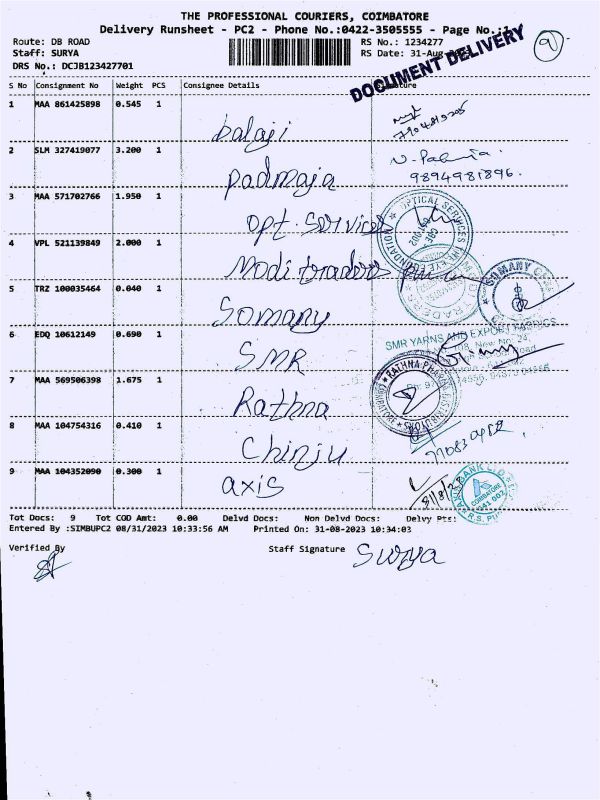 THE PROFESSIONAL COURIERS, COIMBATORE
Delivery Runsheet - PC2 - Phone No.:0422-3505555 - Page No.:1
Route: DB ROAD
RS No.: 1234277
9
Staff: SURYA
RS Date: 31-Aug
DRS No.: DCJB123427701
DOCUMENT DELIVERY
S No Consignment No Weight PCS Consignee Details
1 MAA 861425898 0.545 1
balaji
2 SLM 327419077 3.200 1
padmaja
9894981896.
3 MAA 571702766 1.950 1
opt. Services
OPTICAL SERVICES
FOUNDATION
4 VPL 521139849 2.000 1
Modi traders
5 TRZ 100035464 0.040 1
Somany
SOMANY
6 EDQ 10612149 0.690 1
SMR
SMR YARNS AND EXPORT FABRICS
7 MAA 569506398 1.675 1
Rathna
RATHNA PHARMA
8 MAA 104754316 0.410 1
Chinju
9 MAA 104352090 0.300 1
axis
31/8/23
AXIS BANK LTD
COIMBATORE
641 002
Tot Docs: 9 Tot COD Amt: 0.00 Delvd Docs: Non Delvd Docs: Delvy Pts:
Entered By :SIMBUPC2 08/31/2023 10:33:56 AM Printed On: 31-08-2023 10:34:03
Verified By
Staff Signature Surya